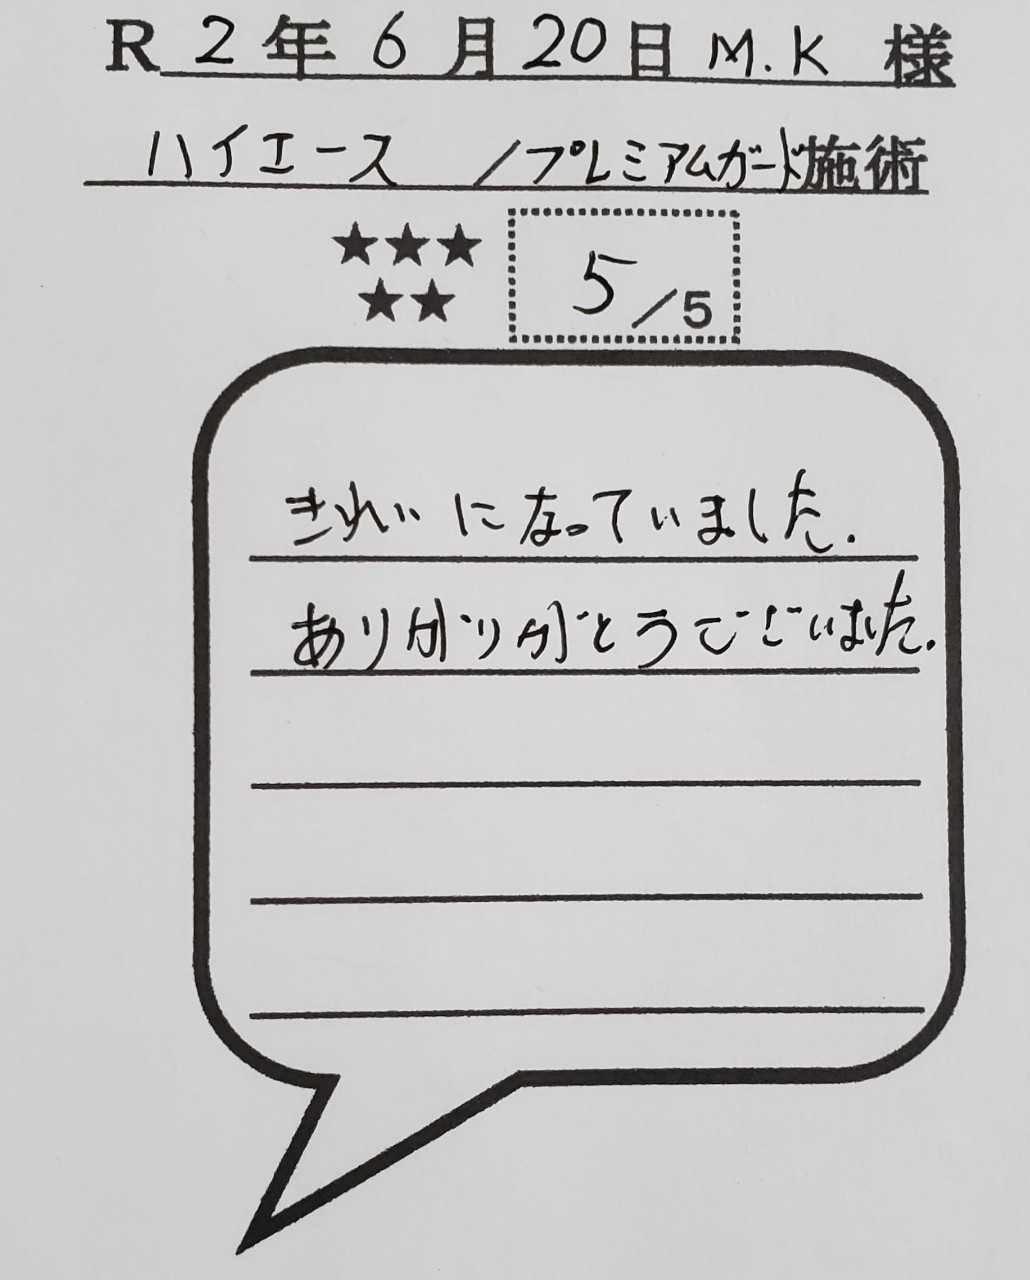 R 2 年 6 月 20 日 M.K 様
ハイエース /プレミアムガード施術
★★★
★★
5/5
きれいになっていました.
ありがりがとうございました.